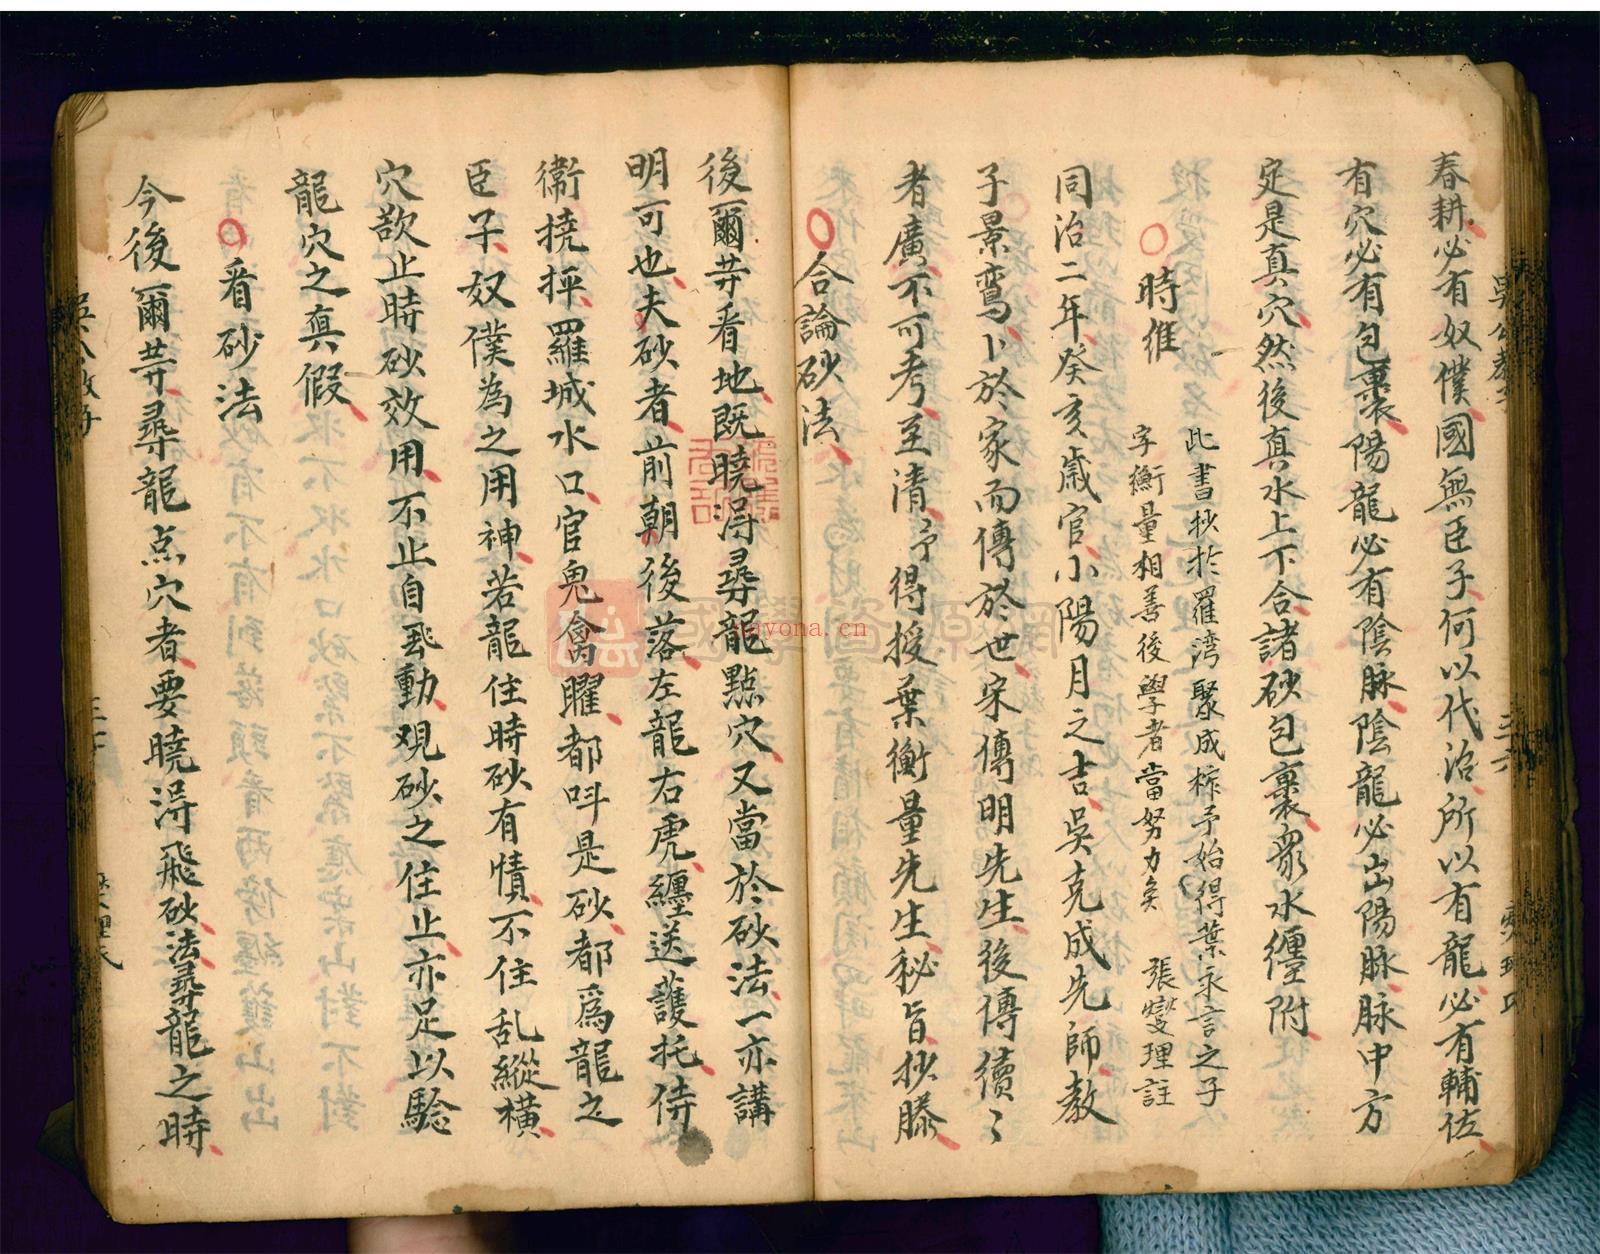 春耕必有奴僕國無臣子何以代治所以有龍必有輔佐
有穴必有包裹陽龍必有陰脉陰龍必出陽脉脉中方
定是真穴然後真水上下合諸砂包裹衆水纏附
時維
此書抄於羅湾聚成柞予始得葉永言之子
字衡量相善後學者當努力矣 張燮理註
同治二年癸亥歲官小陽月之吉吳克成先師教
子景鸞卜於家而傳於世宋傳明先生後傳續〻
者廣不可考至清予得授葉衡量先生秘旨抄謄
合論砂法
後爾等看地既曉得尋龍點穴又當於砂法一亦講
明可也夫砂者前朝後落左龍右虎纏送護托侍
衛撓抨羅城水口官鬼禽曜都呌是砂都爲龍之
臣子奴僕為之用神若龍住時砂有情不住乱縱橫
穴歆止時砂效用不止自飛動观砂之住止亦足以驗
龍穴之真假
看砂法
今後爾等尋龍点穴者要曉得飛砂法尋龍之時
吳公教子
三十
國學資源網
nayona.cn